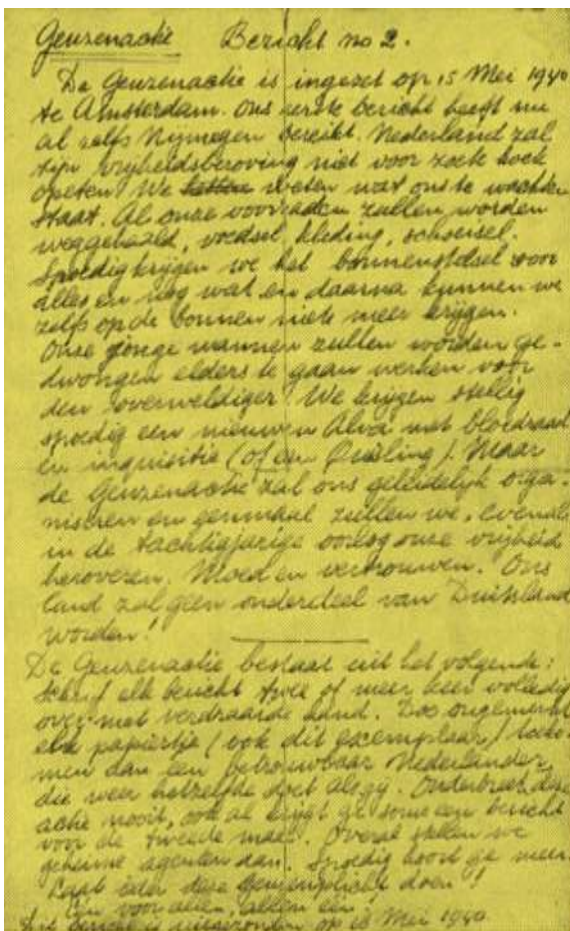 Geuzenactie Bericht no 2.
De Geuzenactie is ingezet op 15 Mei 1940
te Amsterdam. Ons eerste bericht heeft nu
al zelfs Nymegen bereikt. Nederland zal
zijn vrijheidsberoving niet voor zoete koek
opeten. We weten wat ons te wachten
staat. Al onze voorraden zullen worden
weggehaald, voedsel, kleding, schoeisel.
Spoedig krijgen we het bonnenstelsel voor
alles en nog wat en daarna kunnen we
zelfs op de bonnen niets meer krijgen.
Onze jonge mannen zullen worden ge-
dwongen elders te gaan werken voor
den overweldiger. We krijgen stellig
spoedig een nieuwen Alva met bloedraad
en inquisitie (of een Quisling). Maar
de Geuzenactie zal ons geleidelijk orga-
niseren en eenmaal zullen we, evenals
in de tachtigjarige oorlog onze vrijheid
heroveren. Moed en vertrouwen. Ons
land zal geen onderdeel van Duitsland
worden!
De Geuzenactie bestaat uit het volgende:
Schrijf elk bericht twee of meer keer volledig
over met verdraaide hand. Doe ongemerkt
elk papiertje (ook dit exemplaar) toeko-
men aan een betrouwbaar Nederlander,
die weer hetzelfde doet als gy. Onderbreek deze
actie nooit, ook al krijgt ge soms een bericht
voor de tweede maal. Overal stellen we
geheime agenten aan. Spoedig hoort ge meer.
Laat ieder deze geuzenplicht doen!
Een voor allen, allen één!
Dit bericht is uitgezonden op 18 Mei 1940